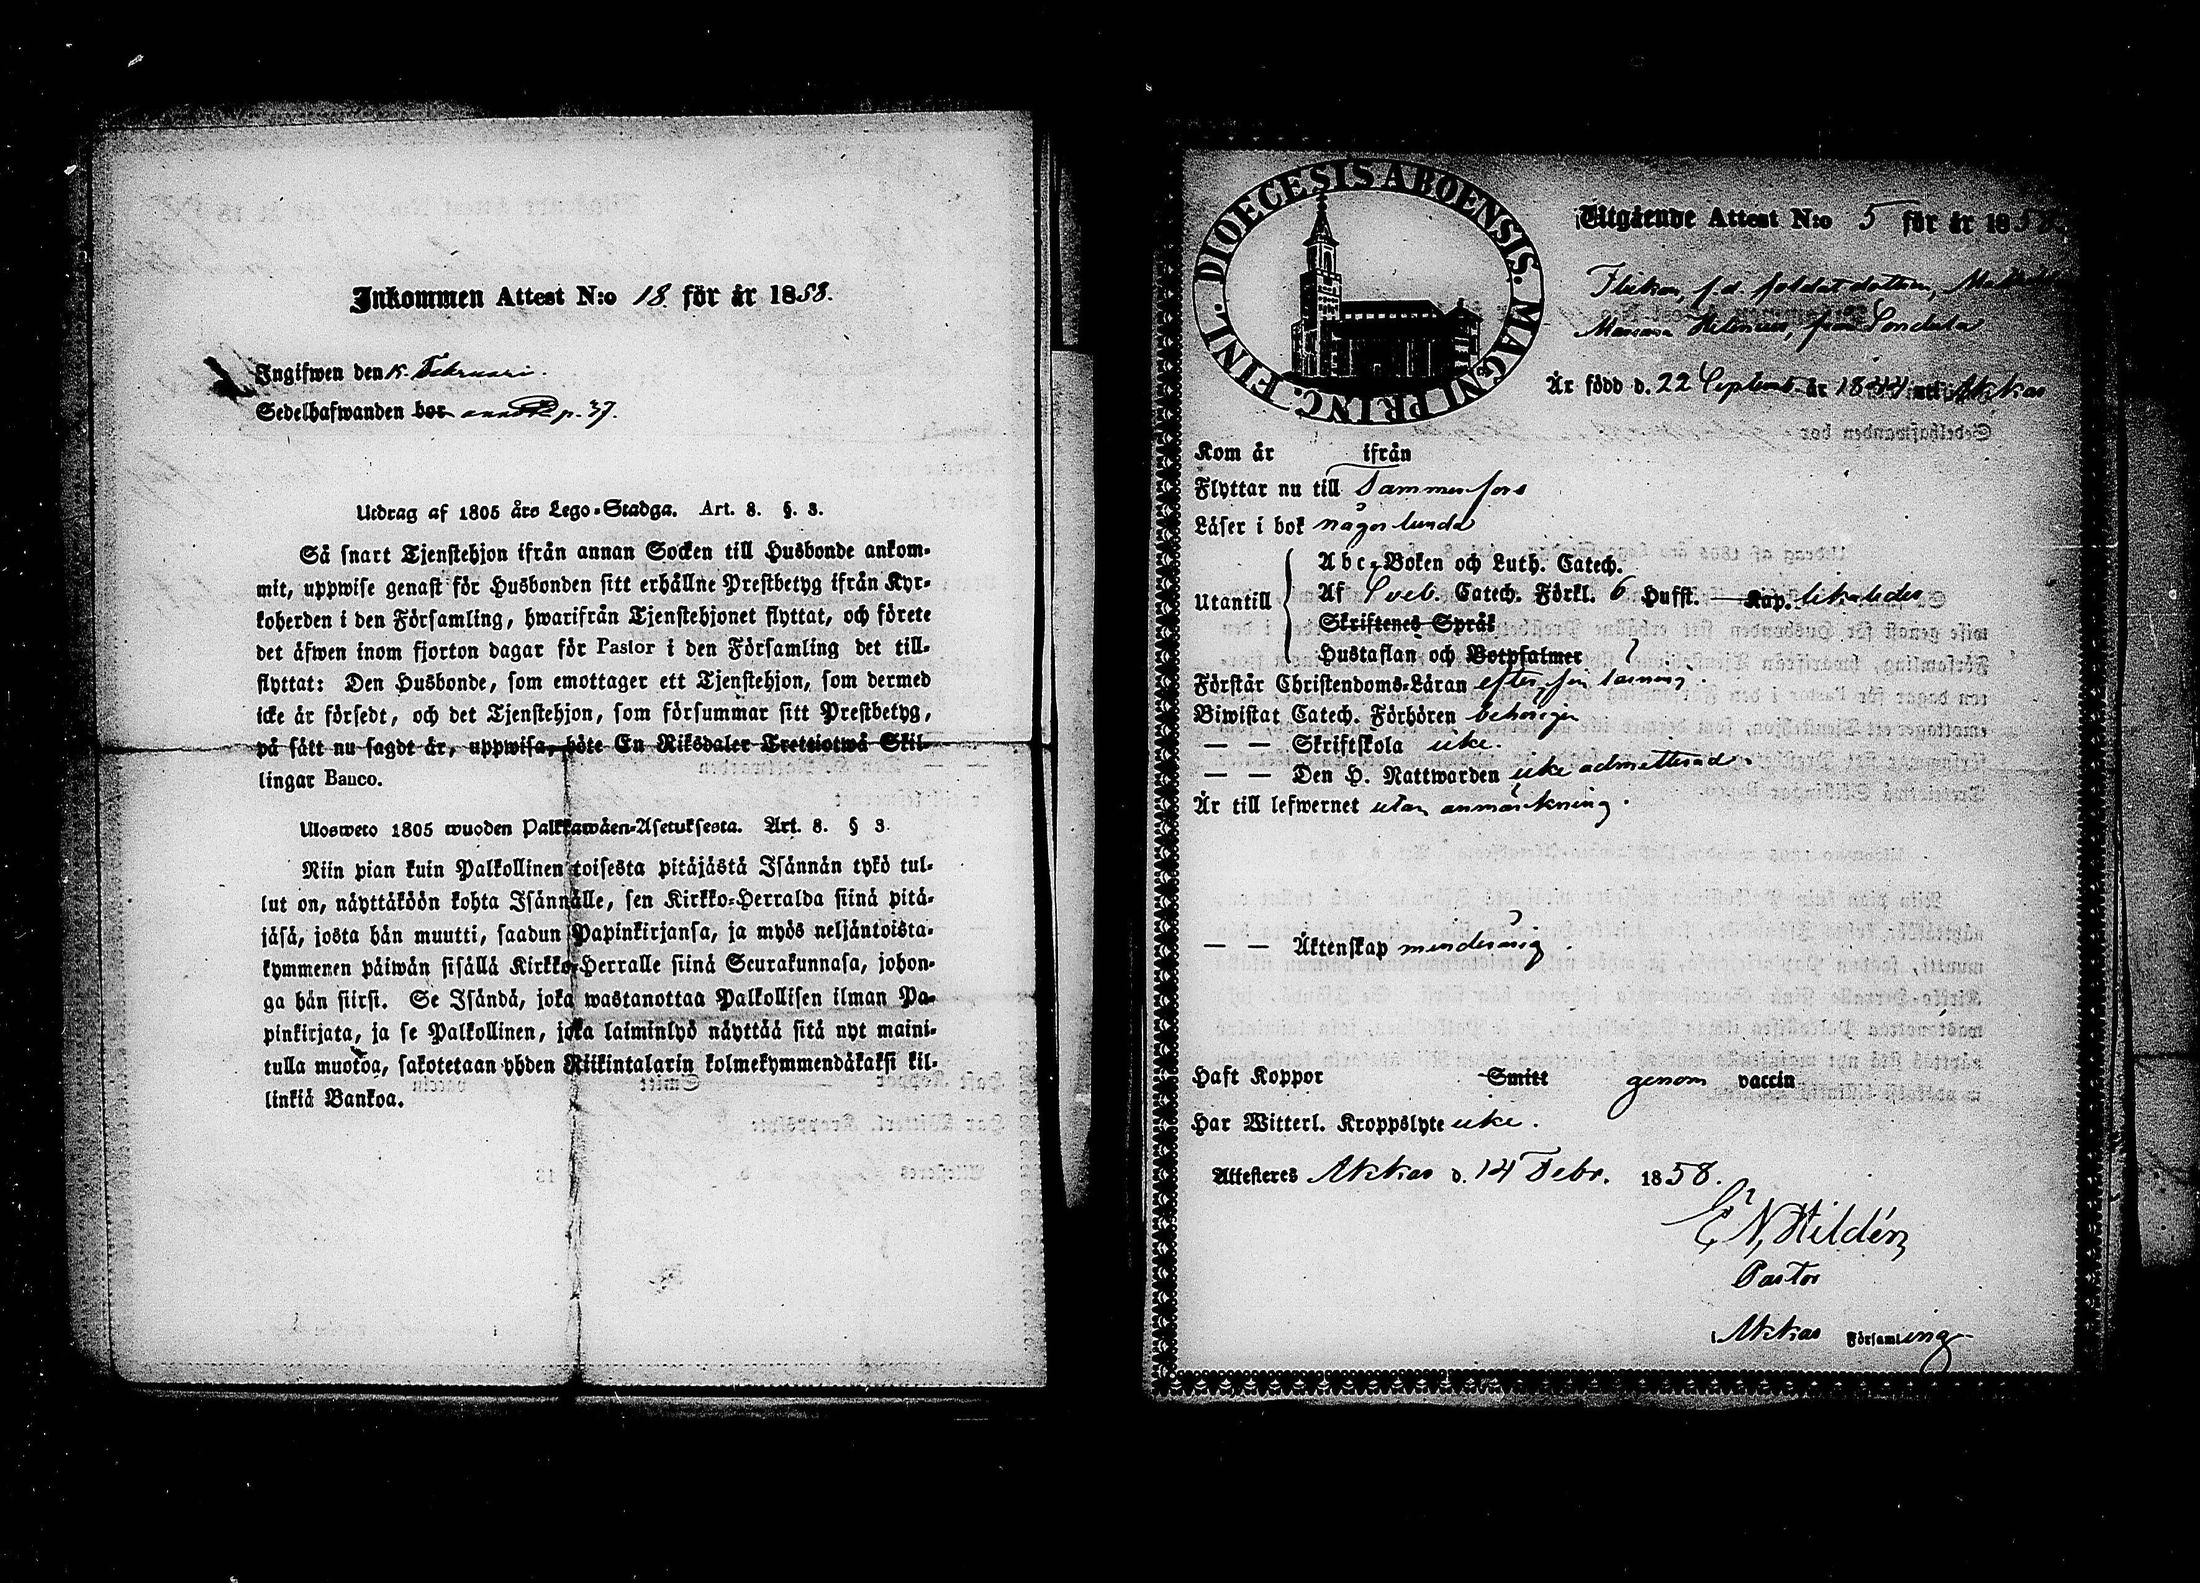 Inkommen Attest N:o 18 för år 1858.
Ingifwen den 15. Februari.
Sedelhafwanden bor p. 37.
Utdrag af 1805 års Lego-Stadga. Art. 8. §. 3.
Så snart Tjenstehjon ifrån annan Socken till Husbonde ankom-
mit, uppwise genast för Husbonden sitt erhållne Prestbetyg ifrån Kyr-
koherden i den Församling, hwarifrån Tjenstehjonet flyttat, och förete
det äfwen inom fjorton dagar för Pastor i den Församling det till-
flyttat: Den Husbonde, som emottager ett Tjenstehjon, som dermed
icke är försedt, och det Tjenstehjon, som försummar sitt Prestbetyg,
på sätt nu sagdt är, uppwisa, böte En Riksdaler Tretiotwå Skil-
lingar Banco.
Ulosweto 1805 wuoden Palkkawäen-Asetuksesta. Art. 8. § 3.
Niin pian kuin Palkollinen toisesta pitäjästä Isännän tykö tul-
lut on, näyttäköön kohta Isännälle, sen Kirkko-Herralda siinä pitä-
jäsä, josta hän muutti, saadun Papinkirjansa, ja myös neljäntoista-
kymmenen päiwän sisällä Kirkko-Herralle siinä Seurakunnasa, johon-
ga hän siirsi. Se Isändä, joka wastanottaa Palkollisen ilman Pa-
pinkirjata, ja se Palkollinen, joka laiminlyö näyttää sitä nyt maini-
tulla muotoa, sakotetaan yhden Riikintalarin kolmekymmendäkaksi kil-
linkiä Bankoa.
FINL. DIOECESIS ABOENSIS. MAGNI PRINC.
Utgående Attest N:o 5 för år 1858
Flickan, f.d. soldatdottern,
Helenius, från Sondula
Är född d. 22 Septemb. år 1844 uti Akkas
Kom år ifrån
Flyttar nu till Tammerfors
Läser i bok någorlunda
Utantill
Abc-Boken och Luth. Catech.
Af Sveb. Catech. Förkl. 6 Hufst. Kap. likaledes
Skriftenes Språk
Hustaflan och Botpsalmer
Förstår Christendoms-Läran efter sin läsning.
Biwistat Catech. Förhören behörigen
— — Skriftskola icke.
— — Den H. Nattwarden icke admitterad.
Är till lefwernet utan anmärkning.
— — Äktenskap minderårig.
Haft Koppor Smitt genom vaccin
Har Witterl. Kroppslyte icke.
Attesteres Akkas d. 14 Febr. 1858.
E. N. Hildén
Pastor
i Akkas Församling